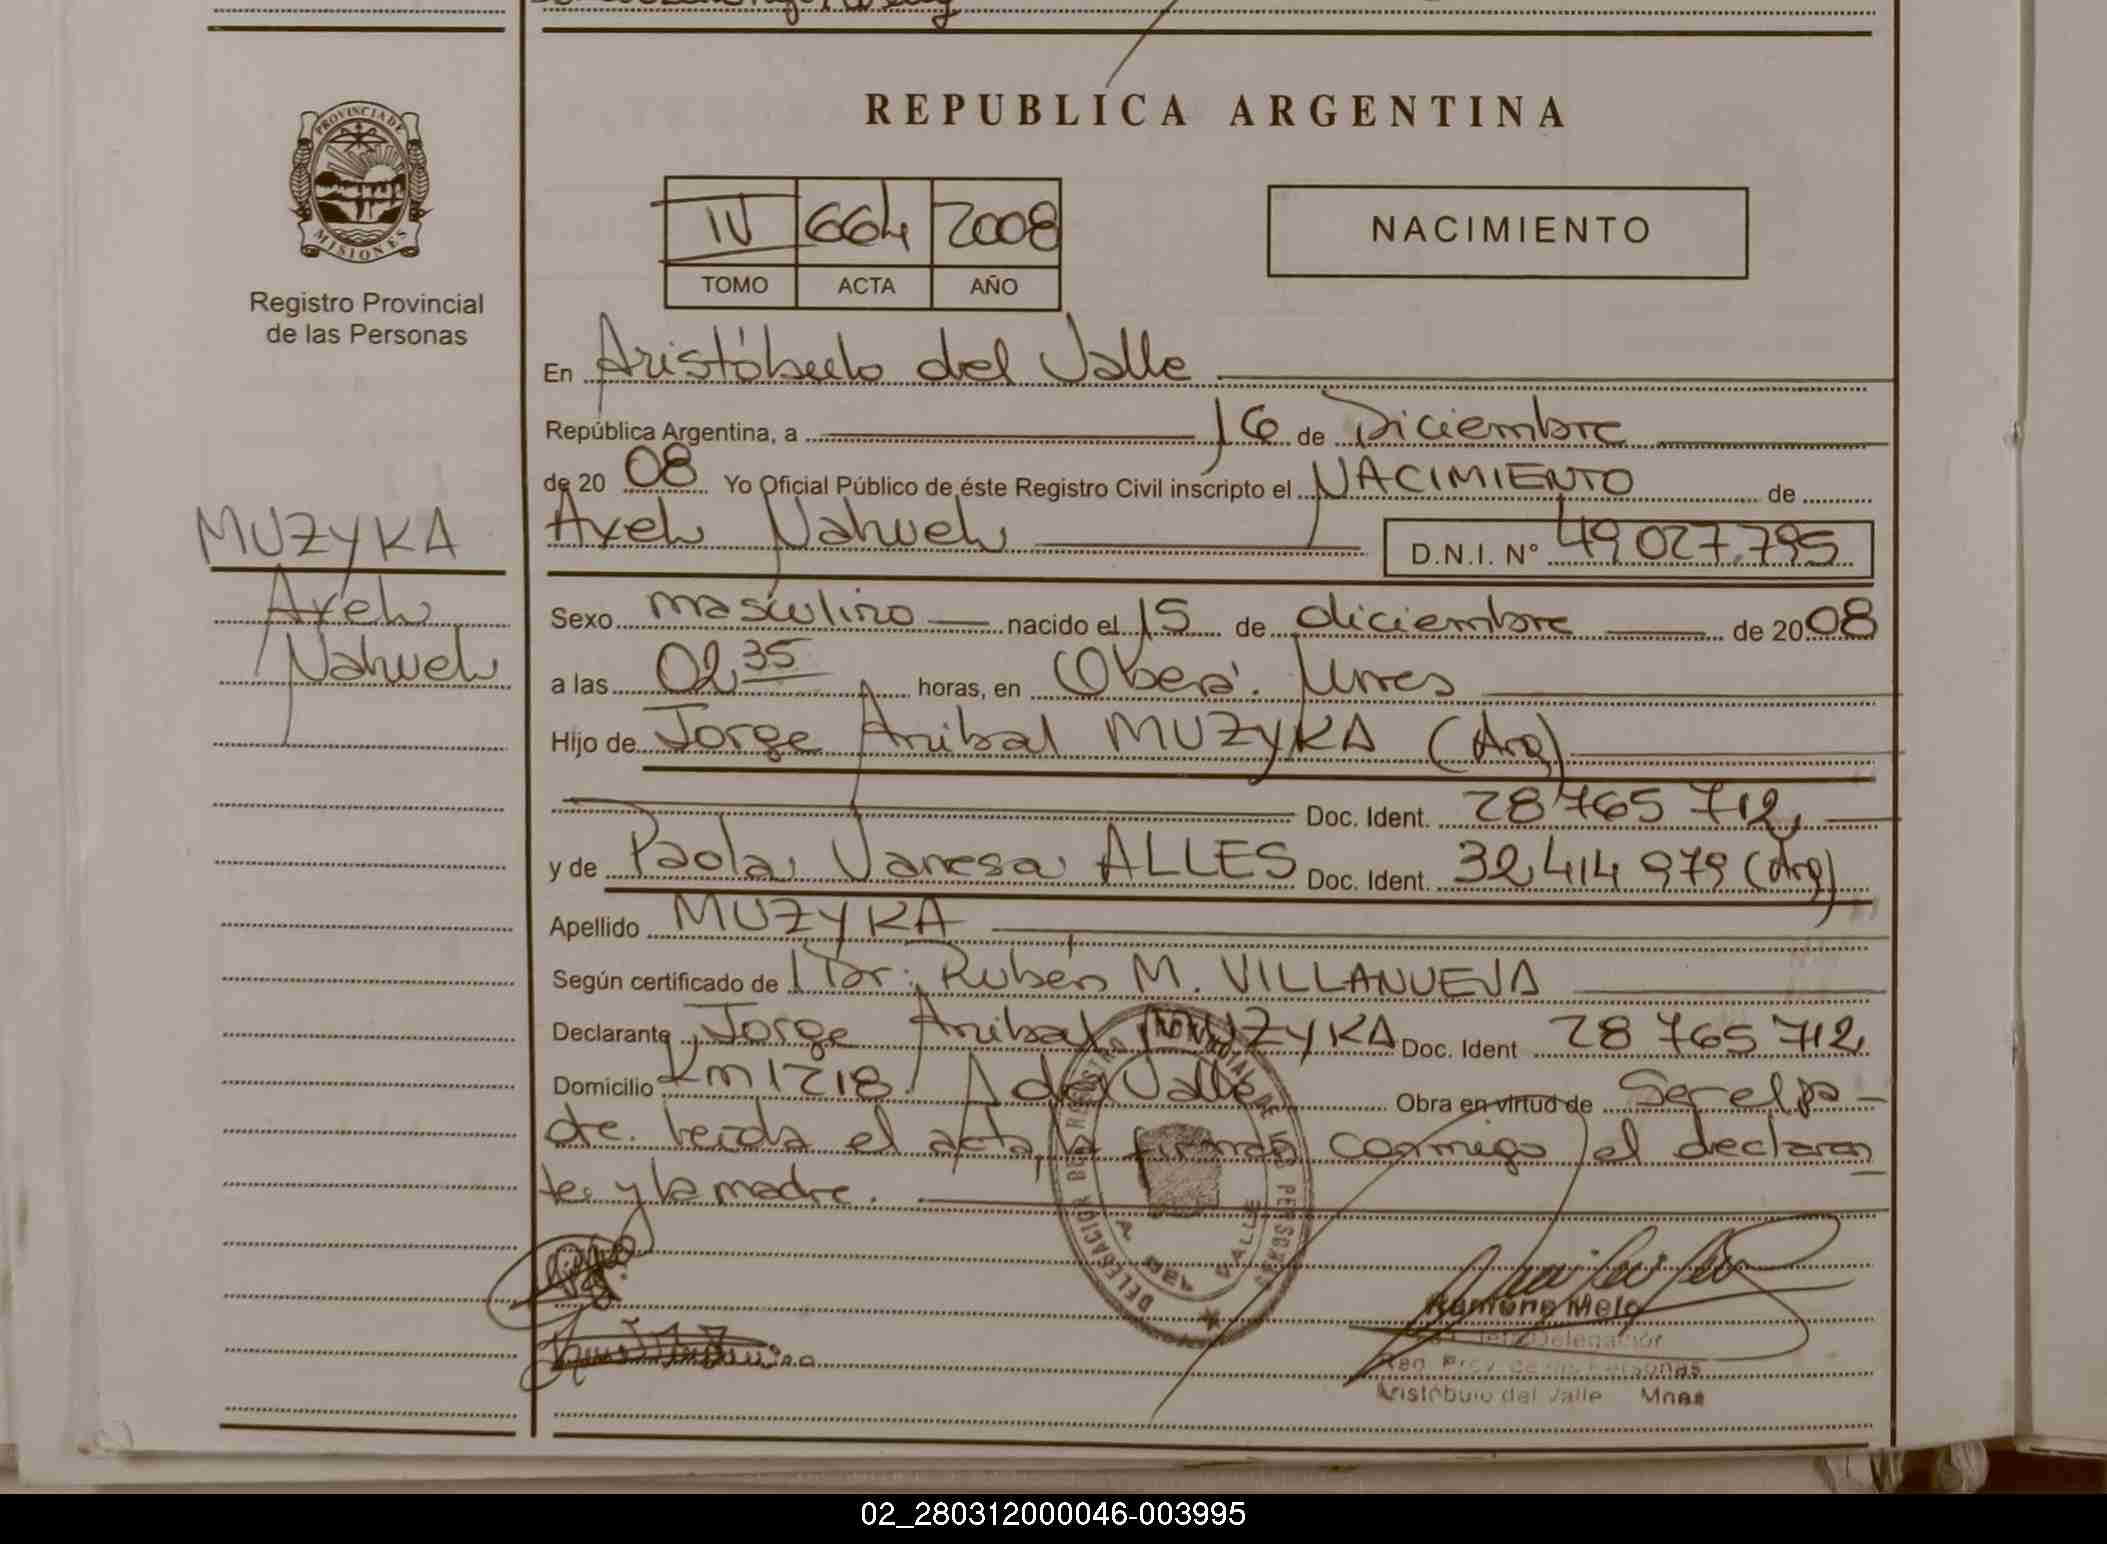 REPUBLICA ARGENTINA
PROVINCIA DE
MISIONES
Registro Provincial
de las Personas
IV 664 2008
TOMO ACTA AÑO
NACIMIENTO
En Aristóbulo del Valle
República Argentina, a 16 de Diciembre
de 20 08 Yo Oficial Público de éste Registro Civil inscripto el NACIMIENTO de
Axel Nahuel D.N.I. N° 49 027.795
MUZYKA
Axel
Nahuel
Sexo masculino nacido el 15 de diciembre de 20 08
a las 02 35 horas, en Oberá. Mnes
Hijo de Jorge Anibal MUZYKA (Arg)
Doc. Ident. 28 765 712
y de Paola Vanesa ALLES Doc. Ident. 32 414 979 (Arg)
Apellido MUZYKA
Según certificado de Dr. Rubén M. VILLANUEVA
Declarante Jorge Anibal MUZYKA Doc. Ident 28 765 712
Domicilio Km 1218 A del Valle Obra en virtud de Ser el pa-
dre. leida el acta, la firman conmigo el declaran
te y la madre.
DELEGACION DEL REGISTRO PROVINCIAL DE LAS PERSONAS
A DEL VALLE
Ramona Melo
Jefe Delegación
Reg. Prov. de las Personas
Aristóbulo del Valle Mnes
02_280312000046-003995